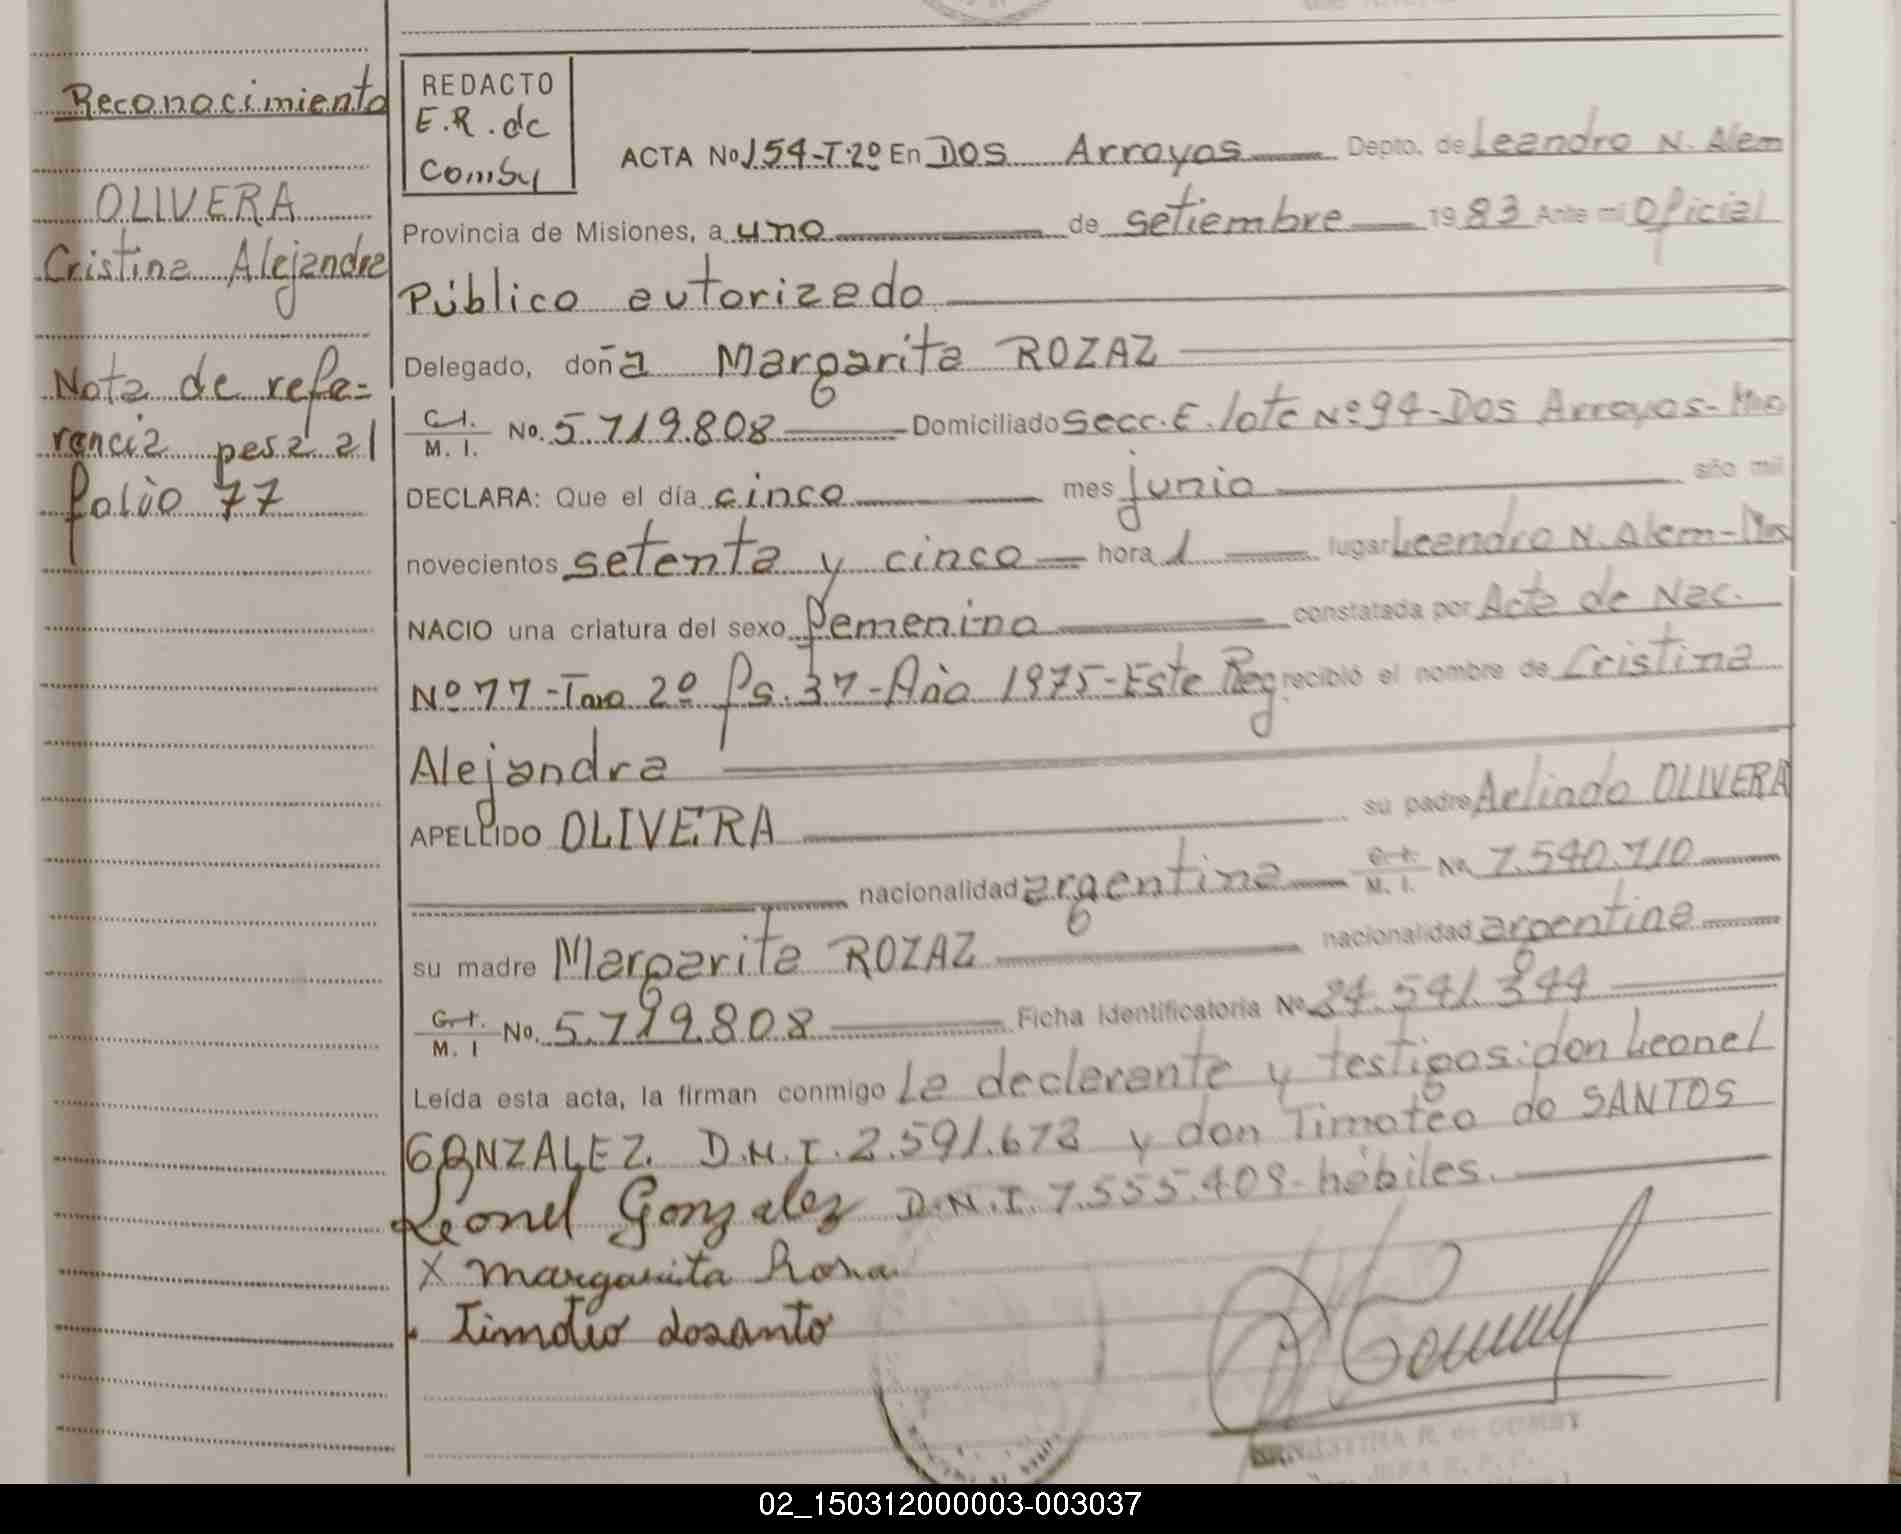 Reconocimiento
OLIVERA
Cristina Alejandra
Nota de refe=
rencia pasa al
folio 77
REDACTO
E.R. de
Comby
ACTA No 154-T.2º En Dos Arroyos Depto. de Leandro N. Alem
Provincia de Misiones, a uno de setiembre 1983 Ante mi Oficial
Público autorizado
Delegado, doña Margarita ROZAZ
C.I. / M. I. No. 5.719.808 Domiciliado Secc. E. lote Nº 94-Dos Arroyos-Mnes
DECLARA: Que el día cinco mes junio año mil
novecientos setenta y cinco hora 1 lugar Leandro N. Alem-Mnes
NACIO una criatura del sexo femenino constatada por Acta de Nac.
Nº 77-Tomo 2º fs. 37-Año 1975-Este Reg recibió el nombre de Cristina
Alejandra
APELLIDO OLIVERA su padre Arlindo OLIVERA
nacionalidad argentina C.I. / M. I. No. 7.540.710
su madre Margarita ROZAZ nacionalidad argentina
C.I. / M. I No. 5.719.808 Ficha identificatoria No. 24.541.344
Leída esta acta, la firman conmigo la declarante y testigos: don Leonel
GONZALEZ. D.N.I. 2.591.672 y don Timoteo do SANTOS
Leonel Gonzalez D.N.I. 7.555.409-hábiles.
X Margarita Rosa
Timoteo dosanto
ERNESTINA R. de COMBY
02_150312000003-003037